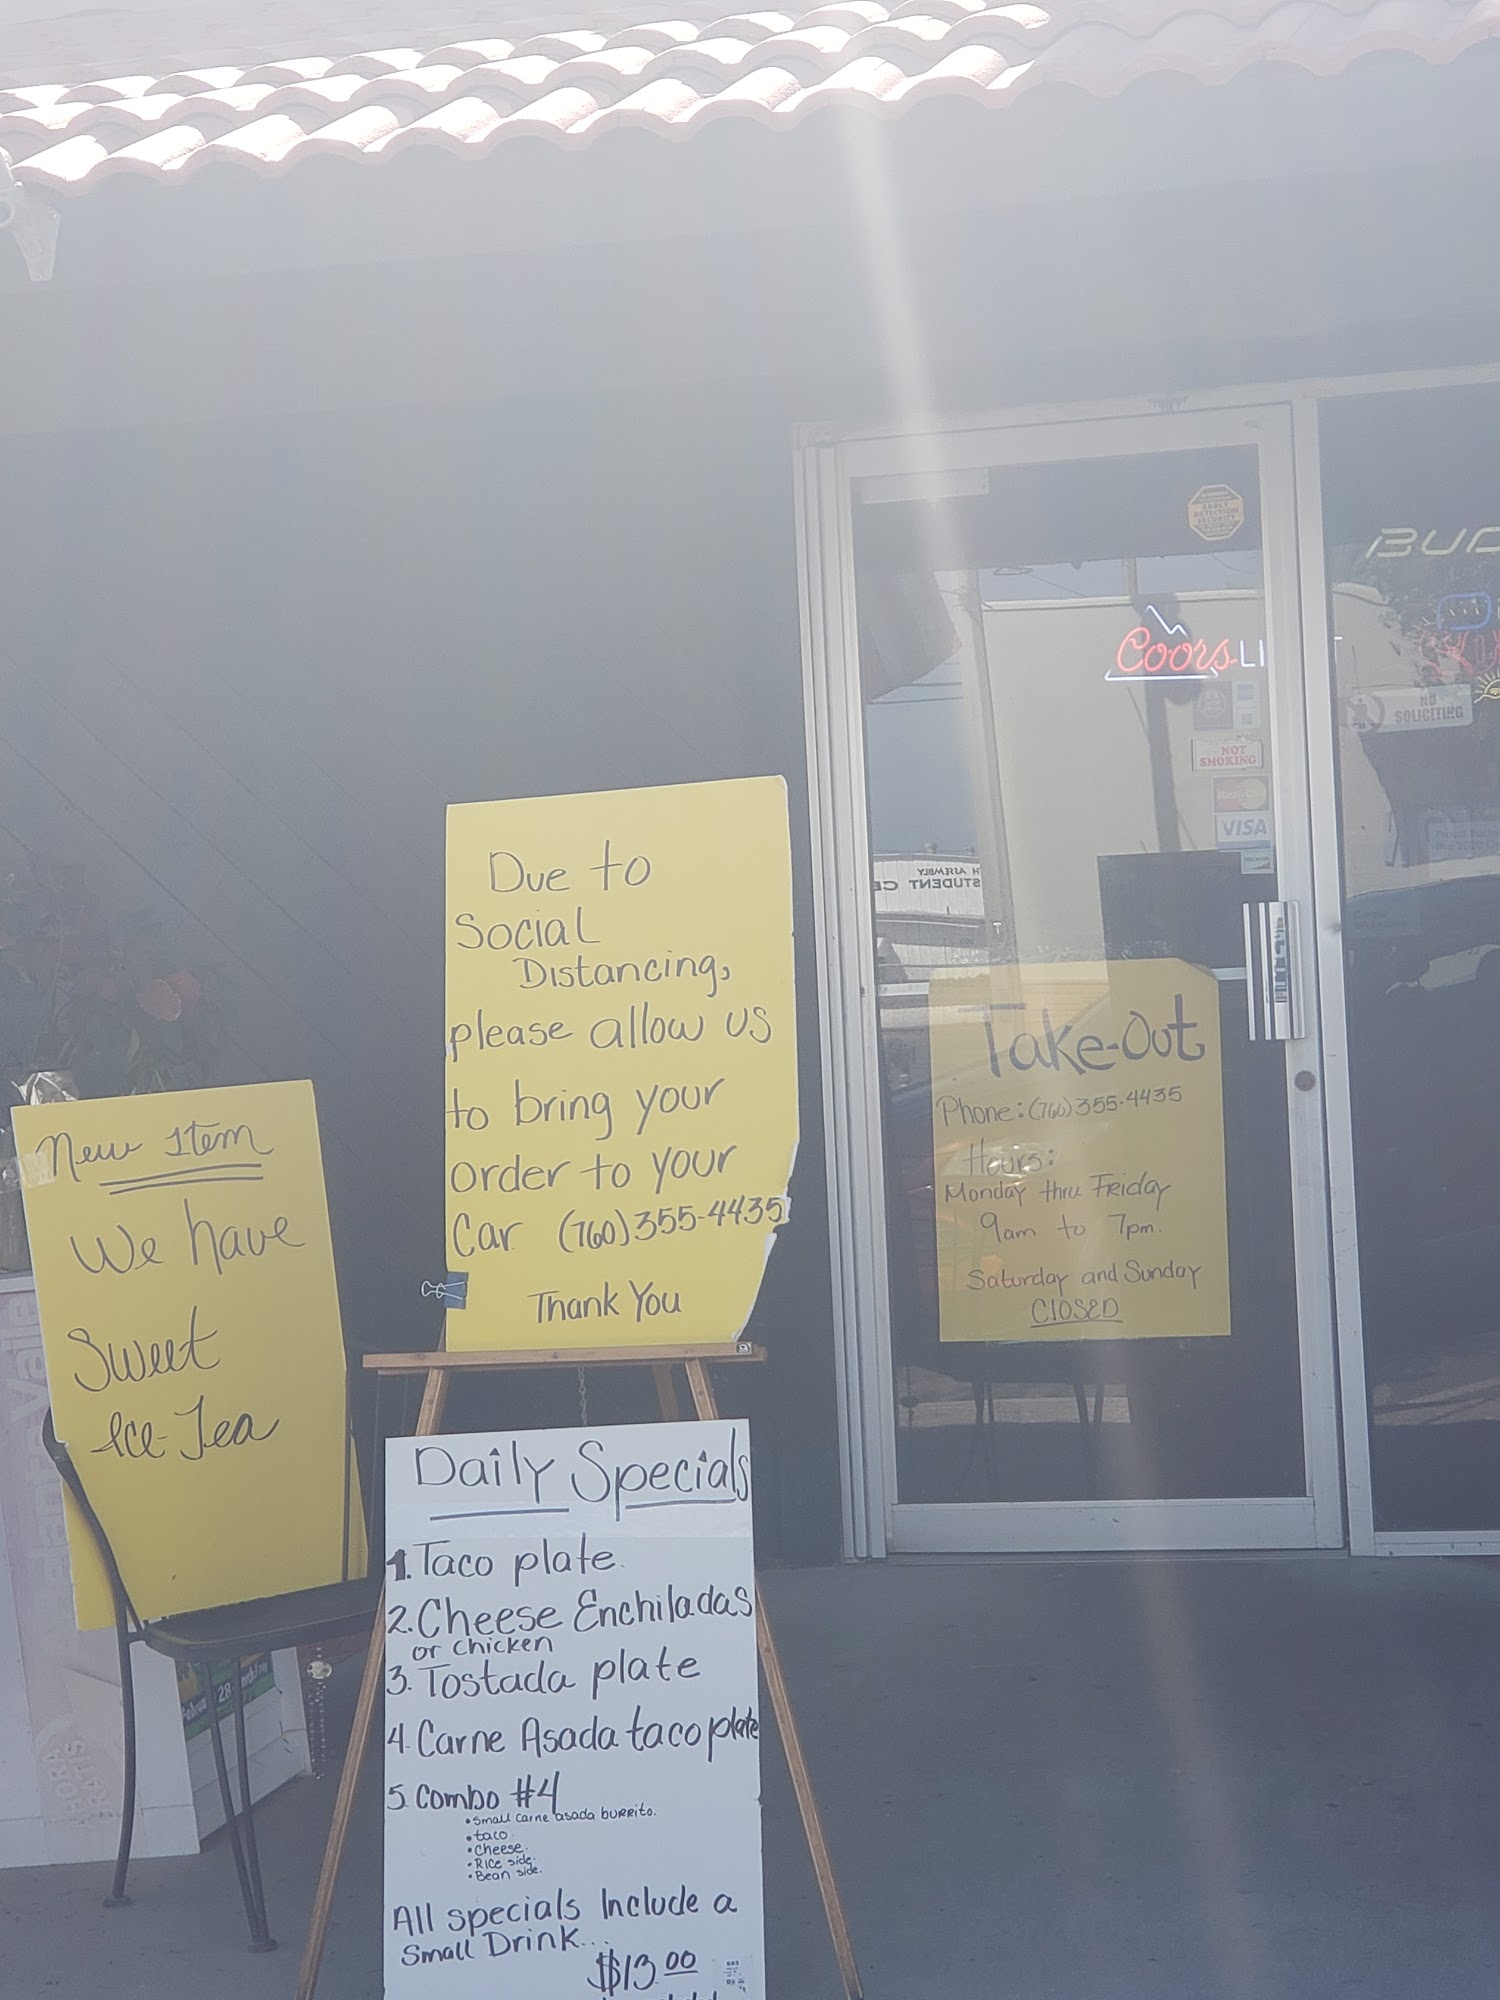 EARLY
DETECTION
SECURITY
BUD
Coors LI
NO
SOLICITING
NOT
SMOKING
MasterCard
VISA
ASSEMBLY
STUDENT CE
Due to
Social
Distancing,
please allow us
to bring your
order to your
Car (760)355-4435
Thank You
Take-Out
Phone: (760)355-4435
Hours:
Monday thru Friday
9am to 7pm.
Saturday and Sunday
CLOSED
New Item
We have
Sweet
Ice-Tea
Daily Specials
1. Taco plate.
2. Cheese Enchiladas
or chicken
3. Tostada plate
4. Carne Asada taco plate
5. Combo #4
• Small carne asada burrito.
• taco.
• Cheese.
• Rice side.
• Bean side.
All specials Include a
Small Drink...
$13.00
28